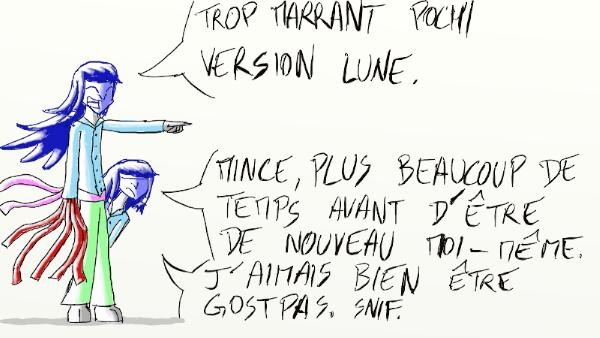 TROP MARRANT POCHI
VERSION LUNE.
MINCE, PLUS BEAUCOUP DE
TEMPS AVANT D'ÊTRE
DE NOUVEAU MOI-MÊME.
J'AIMAIS BIEN ÊTRE
GOSTPAS. SNIF.